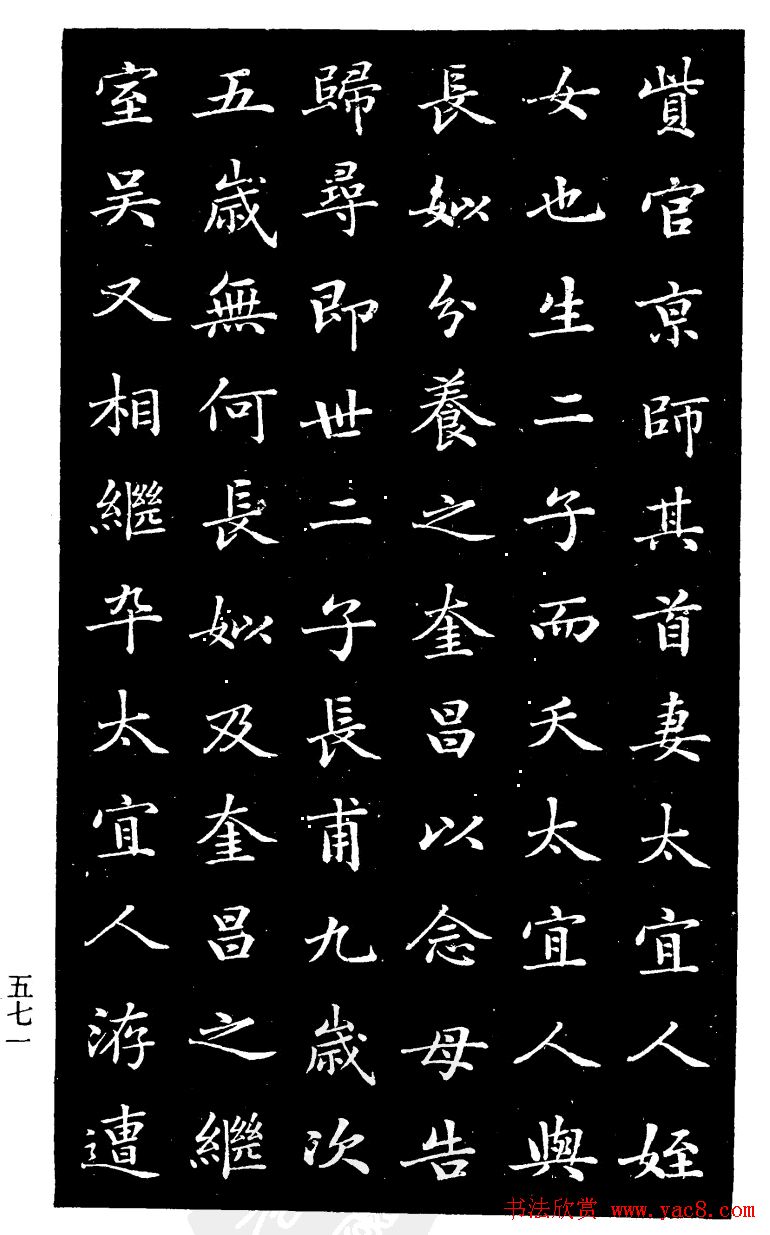 貲官京師其首妻太宜人姪
女也生二子而夭太宜人與
長姒分養之奎昌以念母告
歸尋即世二子長甫九歲次
五歲無何長姒及奎昌之繼
室吴又相繼卒太宜人洊遭
五七一
书法欣赏 www.yac8.com